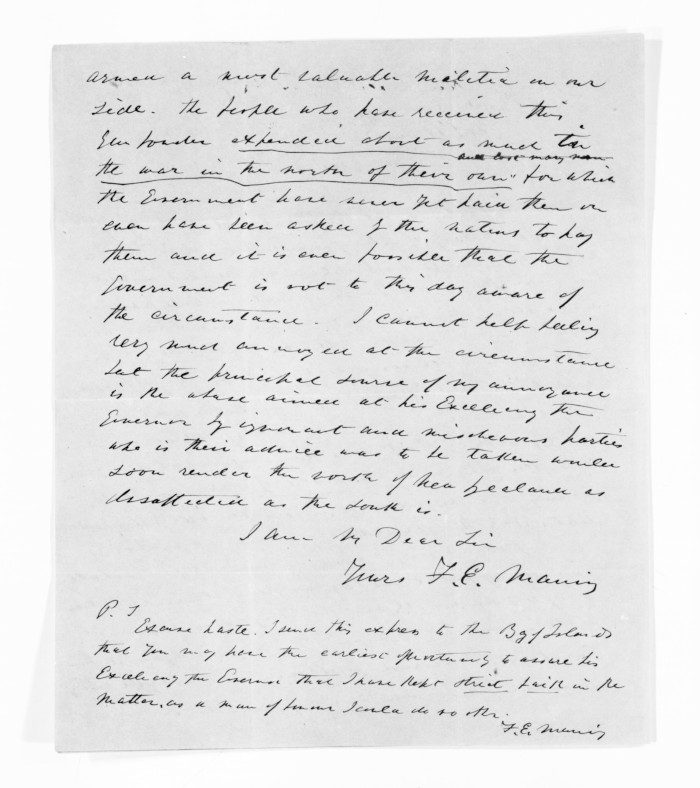 armed a most valuable militia on our
side. The people who have received this
Gun powder expended about as much in
and lost many men
the war in the north of their own" for which
the Government have never yet paid them or
even have been asked by the natives to pay
them and it is even possible that the
Government is not to this day aware of
the circumstance. I cannot help feeling
very much annoyed at the circumstance
but the principal source of my annoyance
is the abuse aimed at his Excellency the
Governor by ignorant and mischevous parties
who is their advice was to be taken would
soon render the north of New Zealand as
dissaffected as the South is.
I am My Dear Sir
Yours F. E. Maning
P. S
Excuse haste. I send this express to the Bay of Islands
that you may have the earliest opportunity to assure his
Excellency the Governor that I have kept strict faith in the
matter, as a man of honour I could do no other.
F. E. Maning